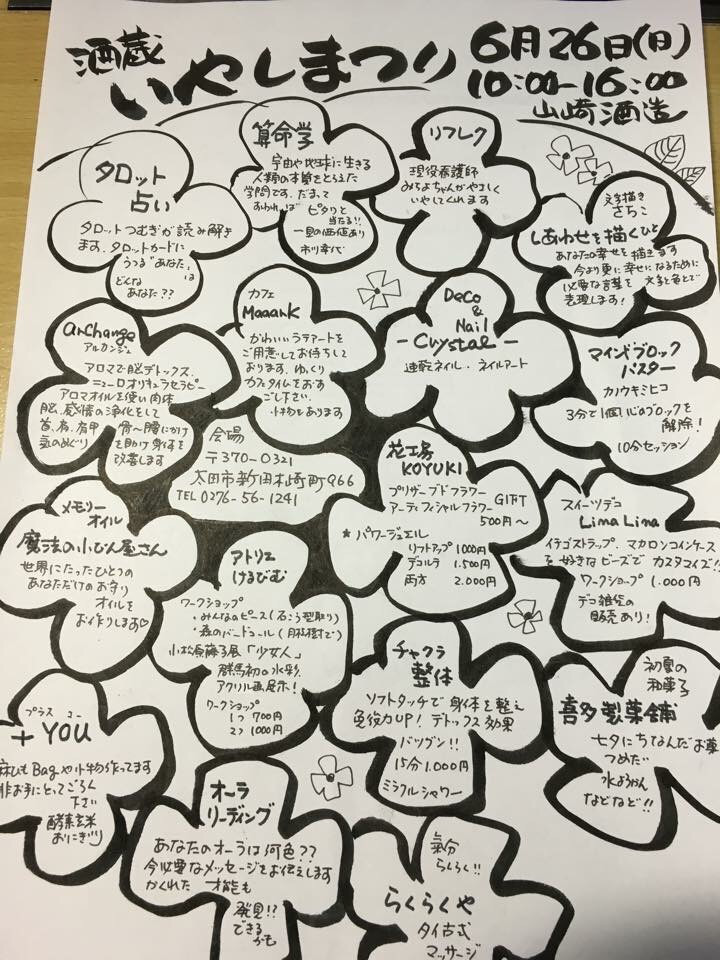 酒蔵
いやしまつり
6月26日(日)
10:00-16:00
山崎酒造
タロット
占い
タロットつむぎが読み解き
ます、タロットカードに
うつる"あなた"は
どんな
あなた??
算命学
宇宙や地球に生きる
人類の本質をとらえた
学問です、だまって
すわれば ピタリと
当たる!!
一見の価値あり
市川幸代
リフレク
現役看護師
みちよちゃんがやさしく
いやしてくれます
文字描き
さちこ
しあわせを描くひと
あなたの幸せを描きます
今より更に幸せになるために
必要な言葉を 文字と色とで
表現します!
archange
アルカンジュ
アロマで脳デトックス
ニューロオリキュラセラピー
アロマオイルを使い肉体
脳、感情の浄化をして
首、肩、背中 骨〜腰にかけ
気のめぐり を助け身体を
改善します
カフェ
Maaank
かわいいラテアートを
ご用意してお待ちして
おります、ゆっくり
カフェタイムをおす
ごし下さい.
小物もあります
Deco
&
Nail
-Crystal-
速乾ネイル・ネイルアート
マインドブロック
バスター
カノウキミヒコ
3分で1個、心のブロックを
解除!
10分セッション
会場
〒370-0321
太田市新田木崎町966
TEL 0276-56-1241
花工房
KOYUKI
プリザーブドフラワー
アーティフィシャルフラワー
GIFT
500円〜
★パワージュエル
リフトアップ 1000円
デコルテ 1.500円
両方 2.000円
スイーツデコ
Lima Lina
イチゴストラップ、マカロンコインケース
を好きなビーズでカスタマイズ!!
ワークショップ 1.000円
デコ雑貨の
販売あり!
メモリー
オイル
魔法の小びん屋さん
世界にたったひとつの
あなただけのお守り
オイルを
お作りします♡
アトリエ
けるびむ
ワークショップ
・みんなのピース(石こう型取り)
・森のバードコール(月桂樹で)
小松原藤子展「少女人」
群馬初の水彩
アクリル画展示!
ワークショップ
1つ 700円
2つ 1000円
チャクラ
整体
ソフトタッチで身体を整え
免疫力UP! デトックス効果
バツグン!!
15分1.000円
ミラクルシャワー
初夏の
和菓子
喜多製菓舗
七夕にちなんだお菓
つめたい
水ようかん
などなど!!
プラス ユー
+YOU
麻ひもBagや小物作ってます
非お手にとってごらく
下さい
酵素玄米
おにぎり
オーラ
リーディング
あなたのオーラは何色??
今必要なメッセージをお伝えします
かくれた 才能も
発見!?
できる
かも
氣分
らくらく!!
らくらくや
タイ古式
マッサージ